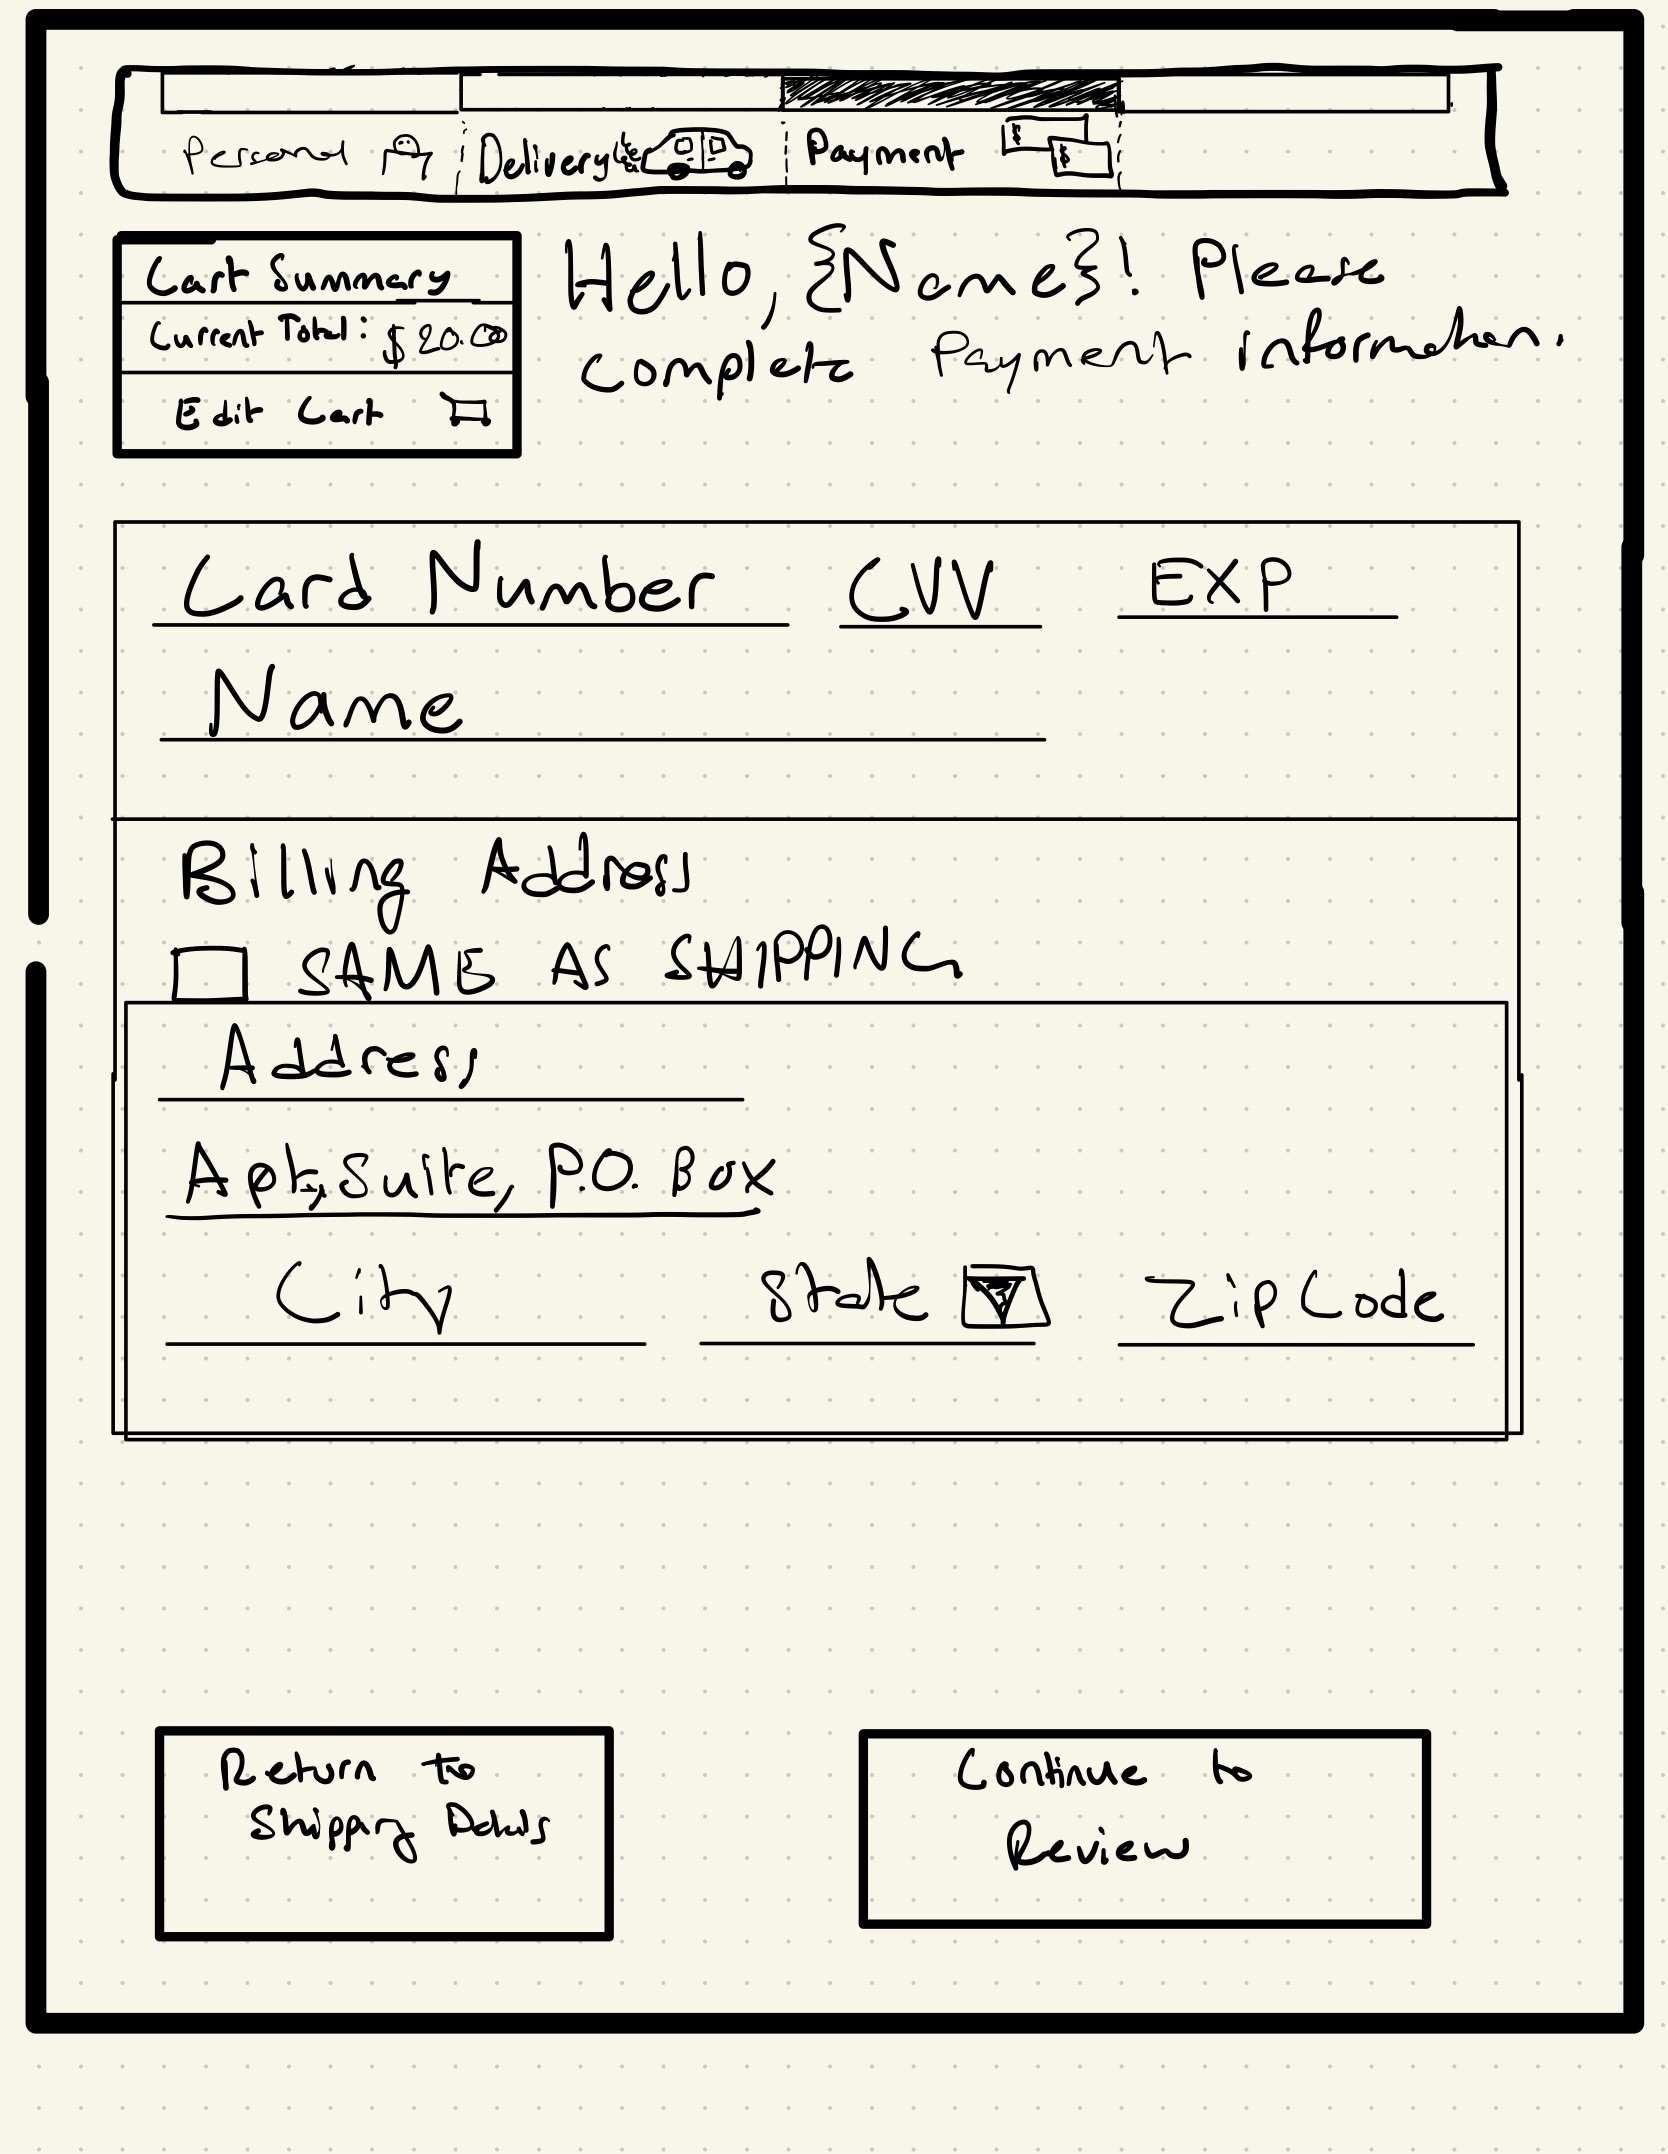 Personal Delivery Payment
Cart Summary
Current Total: $20.00
Edit Cart
Hello, {Name}! Please
complete Payment information.
Card Number CVV EXP
Name
Billing Address
SAME AS SHIPPING
Address
Apt, Suite, P.O. Box
City State Zip Code
Return to
Shipping Details
Continue to
Review